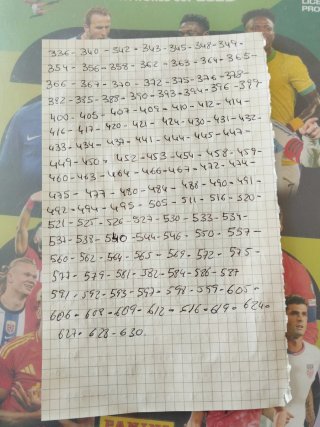 336-340-342-343-345-348-349-
354-356-358-362-363-364-365-
366-367-370-372-375-376-378-
382-385-388-390-393-394-396-399-
400-405-407-409-410-412-414-
416-417-420-421-424-430-431-432-
433-434-437-441-444-445-447-
449-450-452-453-454-458-459-
460-463-464-466-467-472-474-
475-477-480-484-488-490-491-
492-494-495-505-511-516-520-
521-525-526-527-530-533-534-
537-538-540-544-546-550-557-
560-562-564-565-569-572-575-
577-579-581-582-584-586-587
591-592-593-597-598-599-605-
606-608-609-612-616-619-624-
627-628-630.
PANINI